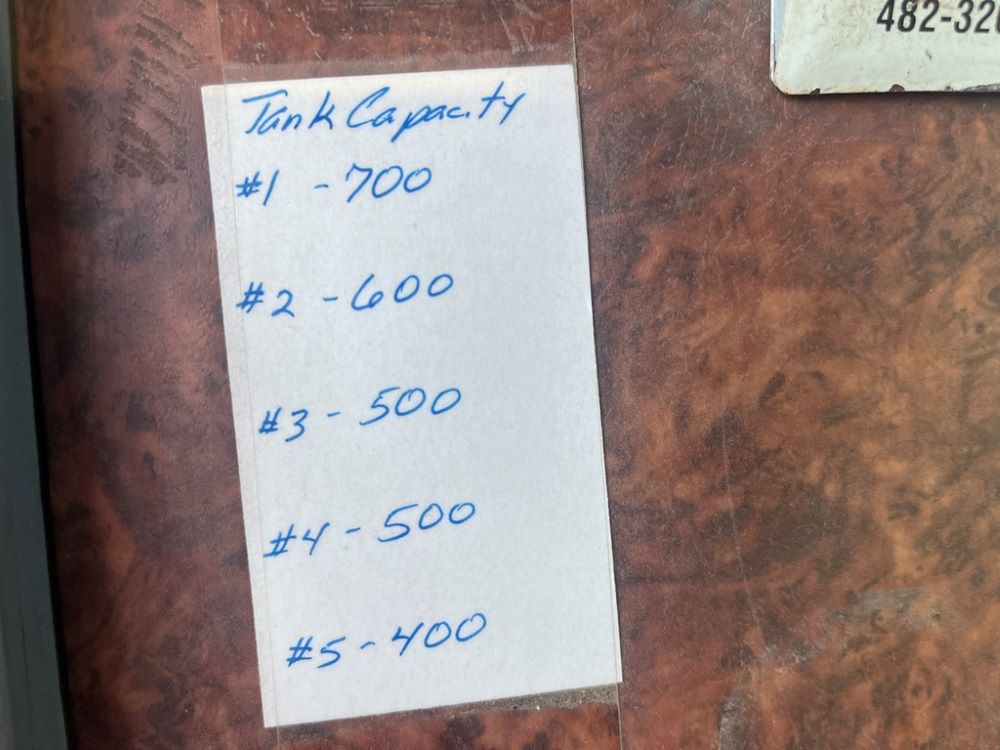 Tank Capacity
#1 - 700
#2 - 600
#3 - 500
#4 - 500
#5 - 400